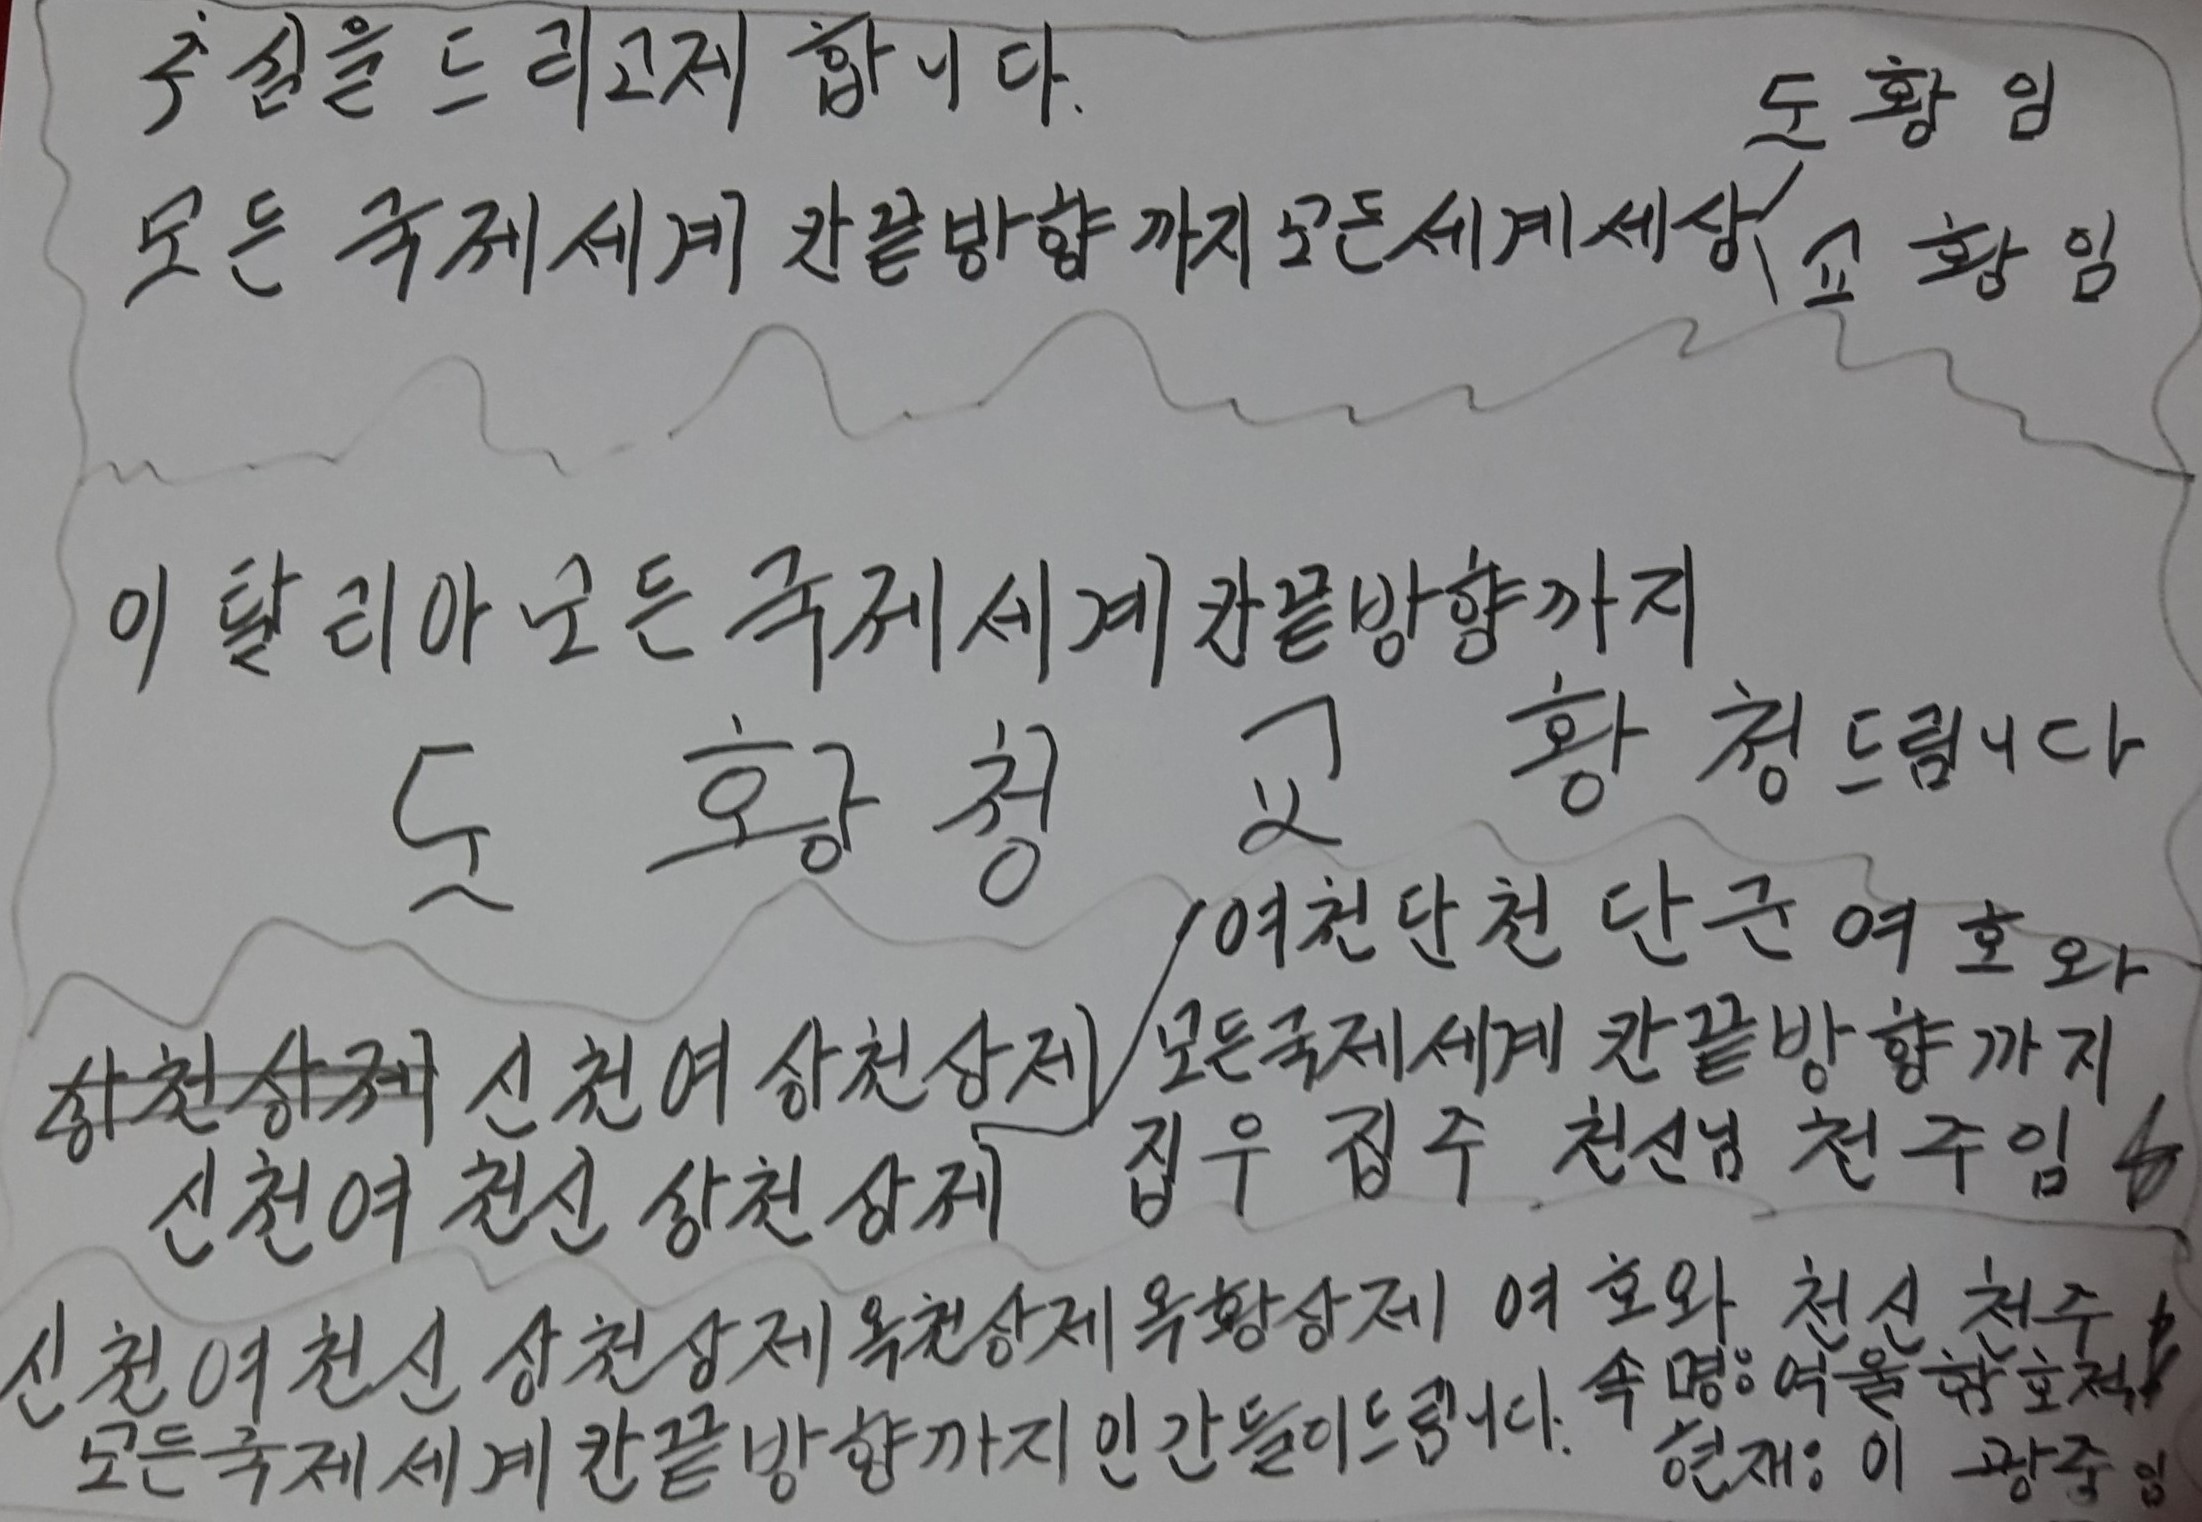 추심을 드리고제 합니다.
도황임
모든 국제세계 칸끝방향 까지 모든세계세상
교황임
이탈리아 모든 국제세계 칸끝방향까지
도 황청 교 황청 드립니다
여천단천 단군 여호와
상천상제 신천여 상천상제 모든국제세계 칸끝방향까지
신천여 천신 상천상제 집우 집주 천선님 천주임
신천여천신 상천상제옥천상제옥황상제 여호와 천신 천주
속명: 여울
모든국제세계 칸끝방향까지인간들이드립니다.
현재: 이 광중임